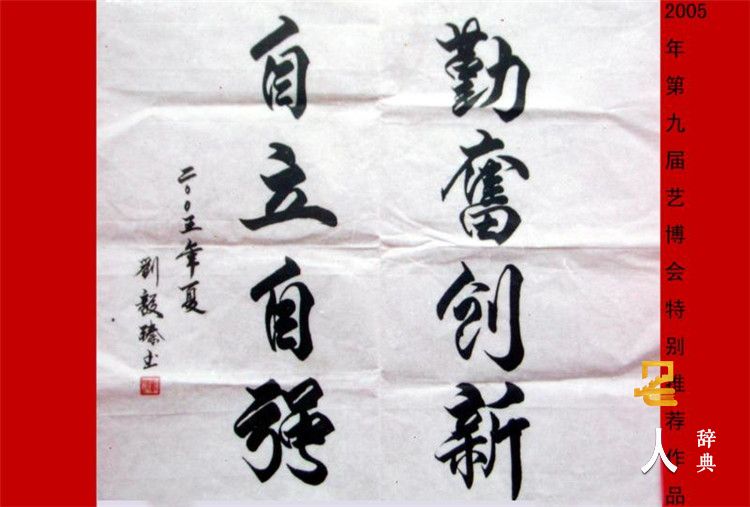 2005年第九届艺博会特别推荐作品
勤奮創新
自立自强
二〇〇五年夏
劉毅臻书
名人辞典